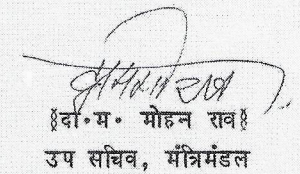 (दा॰म॰ मोहन राव)
उप सचिव, मंत्रिमंडल